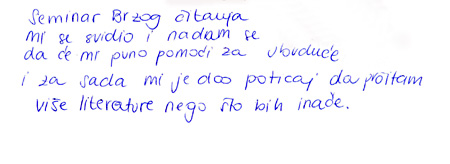 Seminar Brzog čitanja
mi se svidio i nadam se
da će mi puno pomoći za ubuduće
i za sada mi je dao poticaj da pročitam
više literature nego što bih inače.